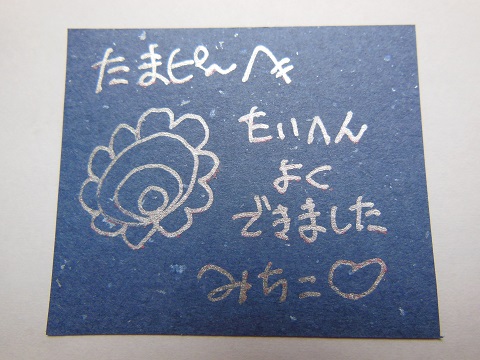 たまぴんへ
たいへん
よく
できました
みちこ♡